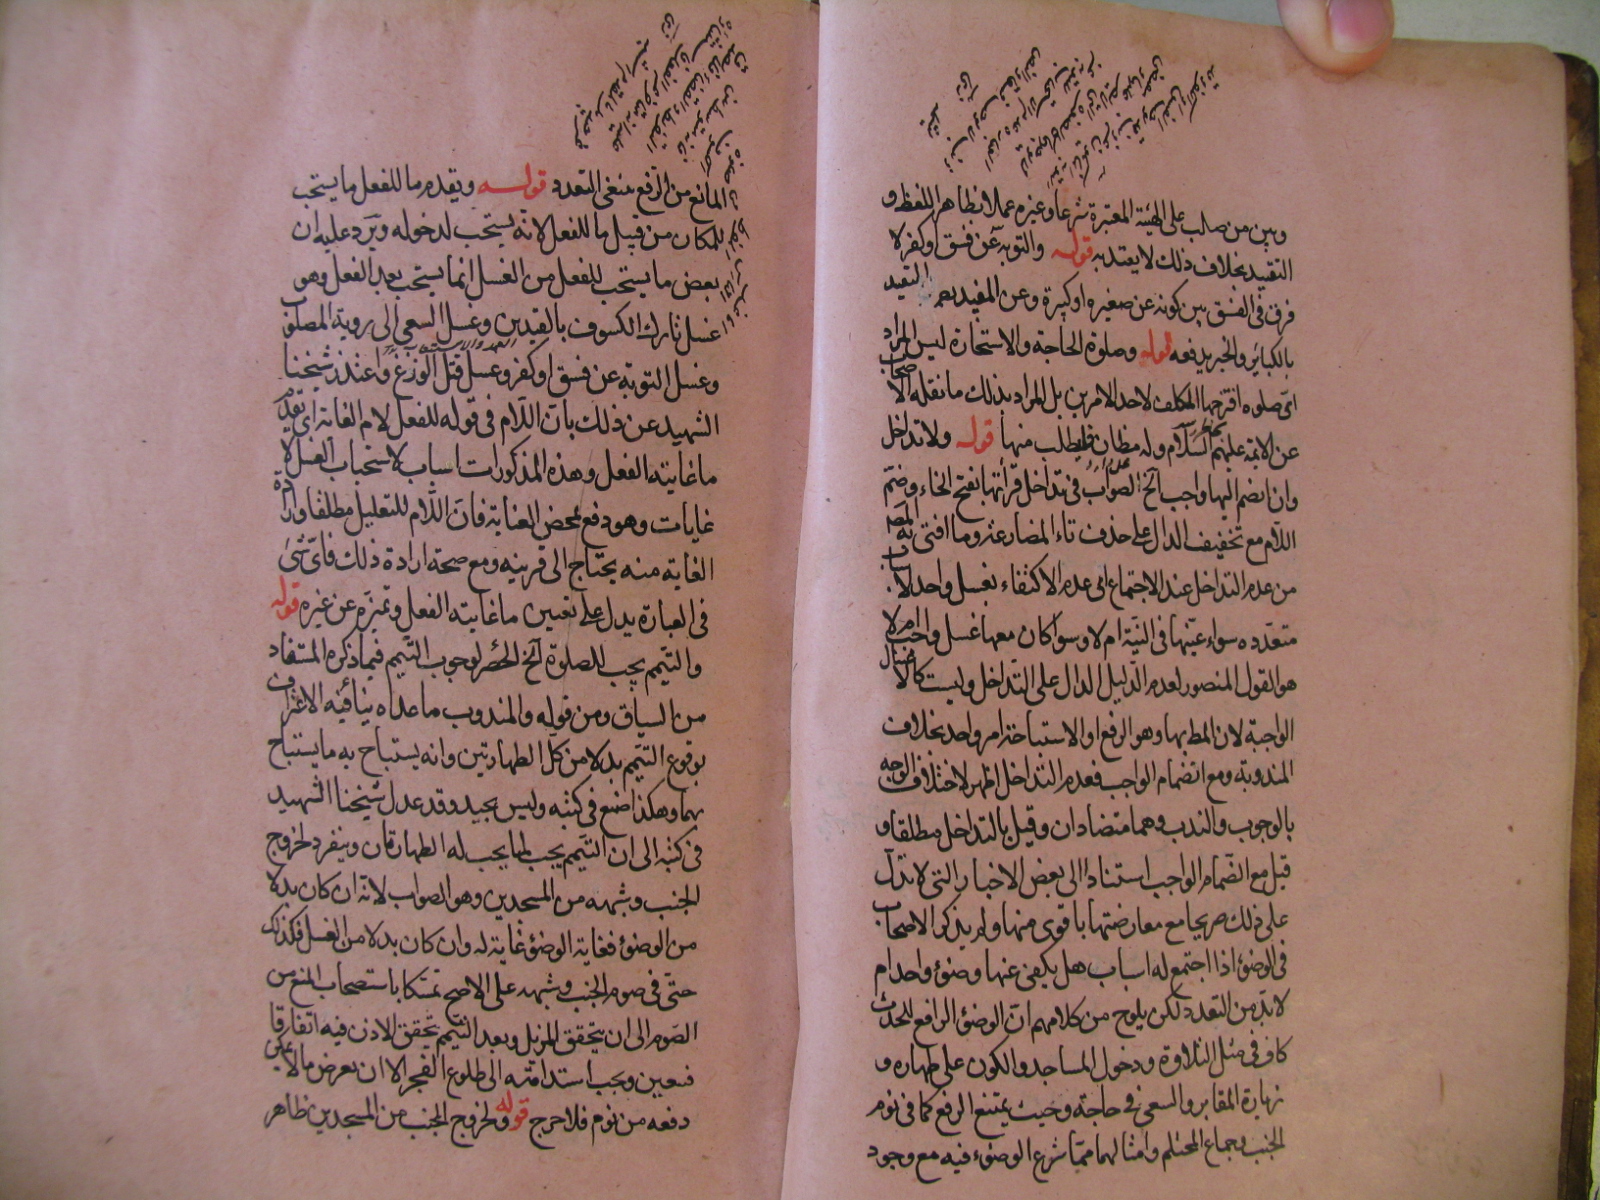 وبين من صلب على الهيئة المعتبرة شرعا وغيره عملا بظاهر اللفظ و
التقييد بخلاف ذلك لا يعتد به قوله والتوبة عن فسق او كفر لا
فرق في الفسق بين كونه عن صغيره او كبيرة وعن المفيد التقييد
بالكبائر والخبر يدفعه قوله وصلوة الحاجة والاستخارة ليس المراد
اى صلوه اقترحها المكلف لاحد الامرين بل المراد بذلك ما نقله الاصحاب
عن الائمة عليهم السلام وله مظان فليطلب منها قوله ولا تداخل
وان انضم اليها واجب آلخ الصواب في تداخل قرأتها بفتح الخاء وضم
اللام مع تخفيف الدال على حذف تاء المضارعة وما افتى به المص
من عدم التداخل عند الاجتماع اى عدم الاكتفاء بغسل واحد لاسباب
متعدده سواء عينها في النية ام لا وسوا كان معها غسل واجب ام لا
هو القول المنصور لعدم الدليل الدال على التداخل وليست كالاغسال
الواجبة لان المط بها وهو الرفع او الاستباحة امر واحد بخلاف
المندوبة ومع انضمام الواجب فعدم التداخل اظهر لاختلاف الوجه
بالوجوب والندب وهما متضادان وقيل بالتداخل مطلقا و
قيل مع انضمام الواجب استنادا الى بعض الاخبار التى لا تدل
على ذلك صريحا مع معارضتها باقوى منها ولم يذكر الاصحاب
في الوضوء اذا اجتمع له اسباب هل يكفى عنها وضوء واحد ام
لا بد من التعدد لكن يلوح من كلامهم ان الوضوء الرافع للحدث
كاف في مثل التلاوة ودخول المساجد والكون على طهاره و
زيارة المقابر والسعى في حاجة وحيث يمتنع الرفع كما في نوم
الجنب وجماع المحتلم وامثالهما مما شرع الوضوء فيه مع وجود
المانع من الرفع ينبغى التعدد قوله ويقدم ما للفعل ما يستحب
للمكان من قبيل ما للفعل لانه يستحب لدخوله ويرد عليه ان
بعض ما يستحب للفعل من الغسل انما يستحب بعد الفعل وهو
غسل تارك الكسوف بالقيدين وغسل السعى الى رؤية المصلوب
وغسل التوبة عن فسق او كفر وغسل قتل الوزغ واعتذر شيخنا
الشهيد عن ذلك بان اللام في قوله للفعل لام الغاية اى يقدم
ما غايته الفعل وهذه المذكورات اسباب لاستحباب الغسل لا
غايات وهو دفع بمحض العناية فان اللام للتعليل مطلقا وارادة
الغاية منه يحتاج الى قرينه ومع صحة ارادة ذلك فاى شئ
في العبارة يدل على تعيين ما غايته الفعل وتميزه عن غيره قوله
والتيمم يجب للصلوة آلخ الحصر لوجوب التيمم فيما ذكره المستفاد
من السياق ومن قوله والمندوب ما عداه ينافيه الاعتراف
بوقوع التيمم بدلا من كل الطهارتين وانه يستباح به ما يستباح
بهما وهكذا صنع في كتبه وليس بجيد وقد عدل شيخنا الشهيد
في كتبه الى ان التيمم يجب لما يجب له الطهارتان وينفرد لخروج
الجنب وشبهه من المسجدين وهو الصواب لانه ان كان بدلا
من الوضوء فغاية الوضوء غاية له وان كان بدلا من الغسل فكذلك
حتى في صوم الجنب وشبهه على الاصح تمسكا باستصحاب المنع من
الصوم الى ان يتحقق المزيل وبعد التيمم يتحقق الاذن فيه اتفاقا
فتعين ويجب استدامته الى طلوع الفجر الا ان يعرض ما لا يمكن
دفعه من نوم فلا حرج قوله ولخروج الجنب من المسجدين ظاهر